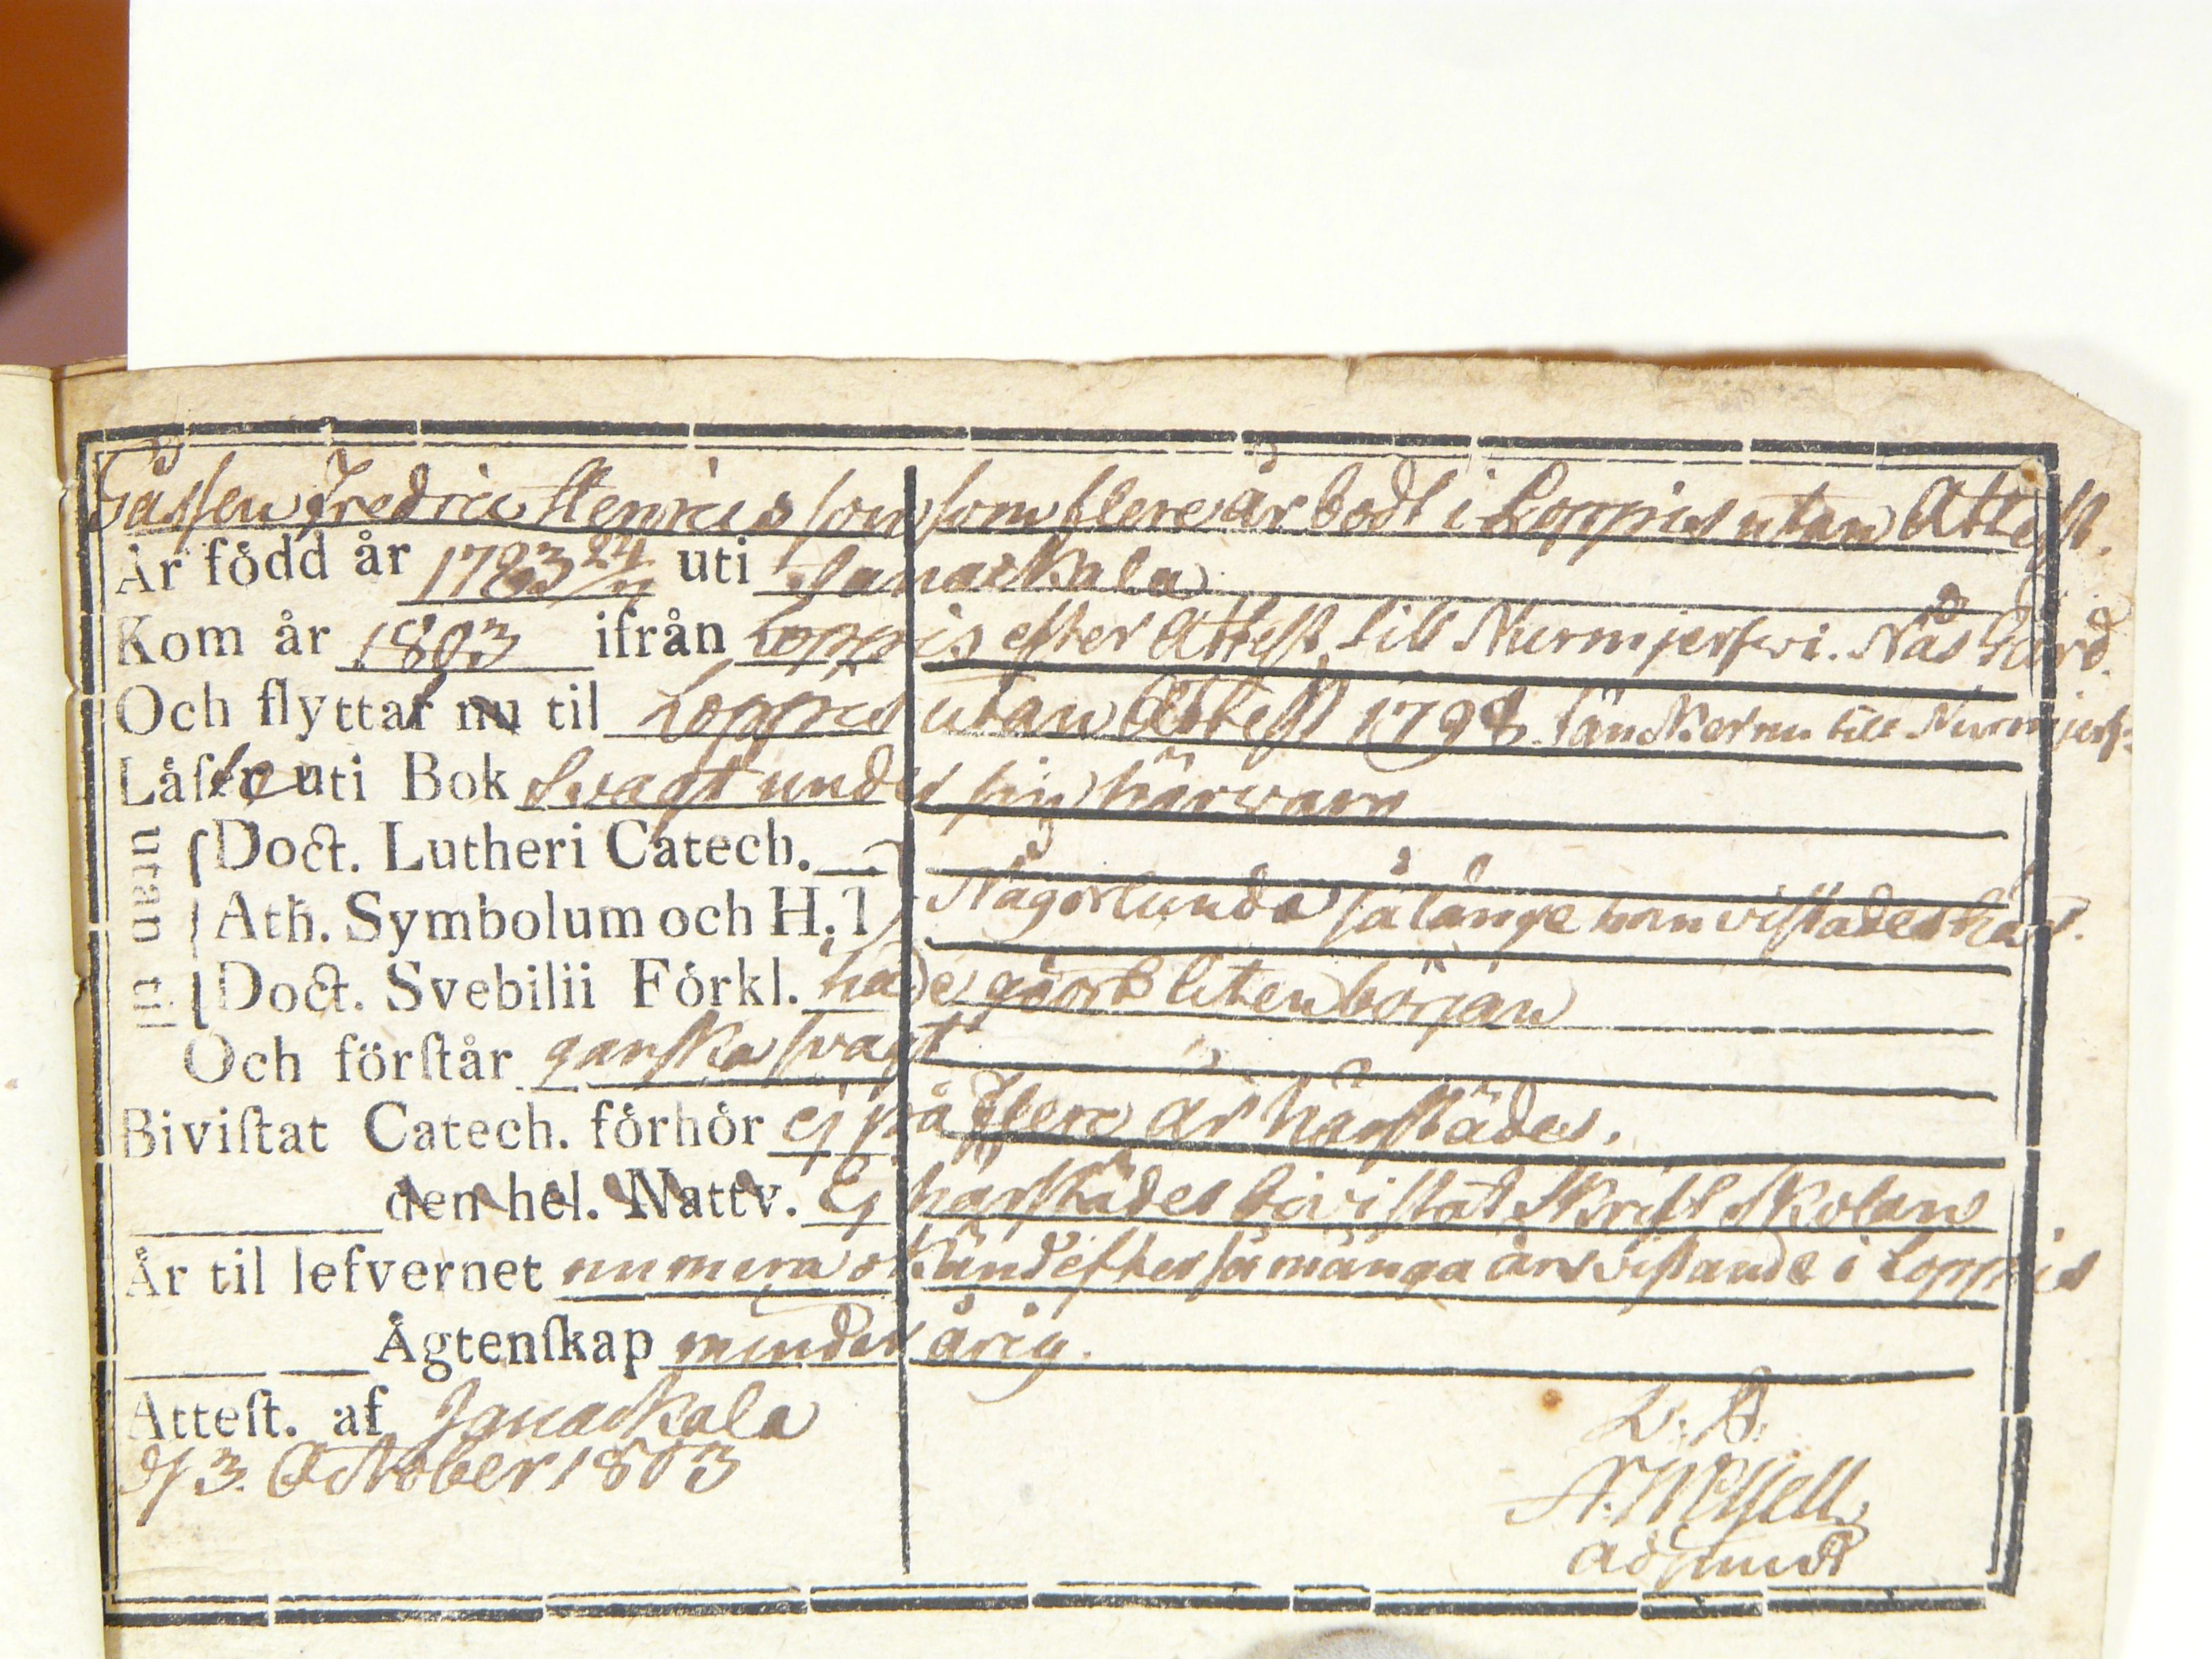 Gåssen Fredric Henricsson som flere år bodt i Loppis utan Attest.
Är född år 1783 24/11 uti Janackala
Kom år 1803 ifrån Loppis efter Attest till Nurmjerfwi. Nås Gård.
Och flyttat nu til Loppis utan Attest 1798.
Låſte uti Bok Svagt under sin härvaro
Utan til
Doct. Lutheri Catech.
Ath. Symbolum och H. T
Någorlunda så länge han vistades här.
Doct. Svebilii Förkl. hade gjort liten början
Och förſtår ganska svagt
Biviſtat Catech. förhör ej på flere år härstädes.
den hel. Nattv. Ej härstädes bivistat Skriftskolan
År til lefvernet numera okänd efter så många års vistande i Loppis
Ågtenſkap minderårig.
Atteſt. af Janackala
d/3. October 1803
L. S.
Adjunct